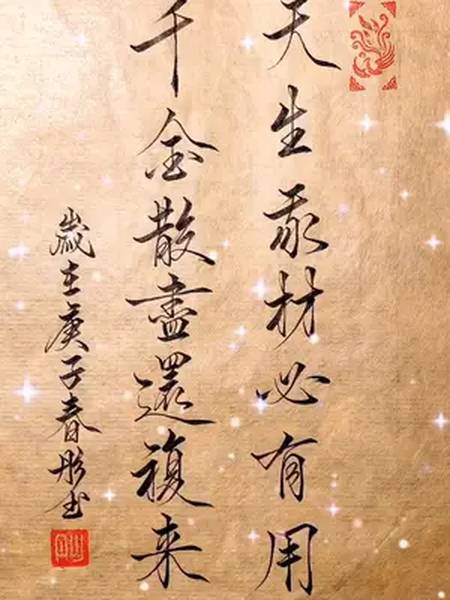 天生我材必有用
千金散盡還複来
歲在庚子春彤书